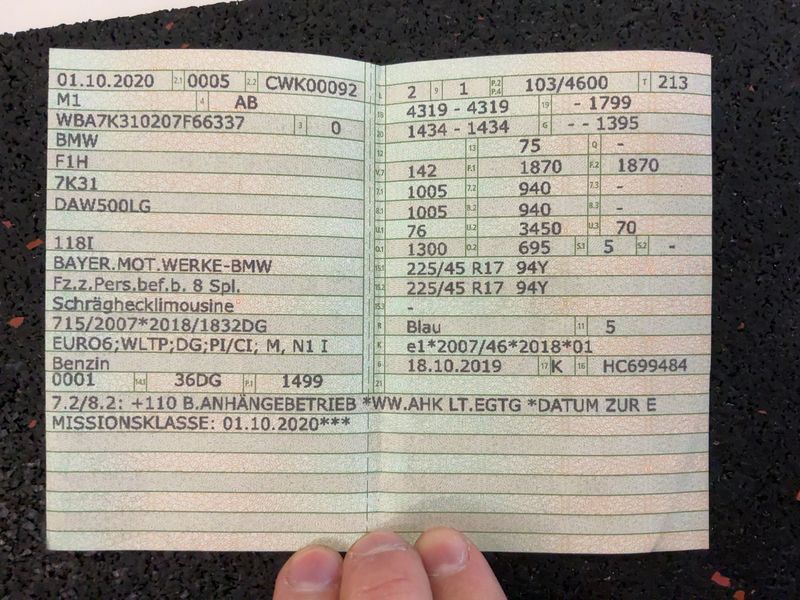 01.10.2020 2.1 0005 2.2 CWK00092
M1 4 AB
WBA7K310207F66337 3 0
BMW
F1H
7K31
DAW500LG
118I
BAYER.MOT.WERKE-BMW
Fz.z.Pers.bef.b. 8 Spl.
Schräghecklimousine
715/2007*2018/1832DG
EURO6;WLTP;DG;PI/CI; M, N1 I
Benzin
0001 14.1 36DG P.1 1499
L 2 9 1 P.2 P.4 103/4600 T 213
18 4319 - 4319 19 - 1799
20 1434 - 1434 G - - 1395
12 13 75 Q -
V.7 142 F.1 1870 F.2 1870
7.1 1005 7.2 940 7.3 -
8.1 1005 8.2 940 8.3 -
U.1 76 U.2 3450 U.3 70
O.1 1300 O.2 695 S.1 5 S.2 -
15.1 225/45 R17 94Y
15.2 225/45 R17 94Y
15.3 -
R Blau 11 5
K e1*2007/46*2018*01
6 18.10.2019 17 K 16 HC699484
21
7.2/8.2: +110 B.ANHÄNGEBETRIEB *WW.AHK LT.EGTG *DATUM ZUR E
MISSIONSKLASSE: 01.10.2020***